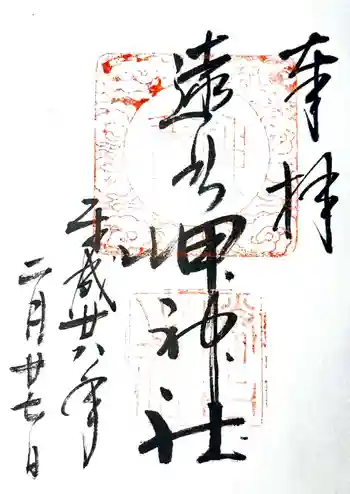 奉拝
遠见岬神社
平成廿八年
二月廿七日